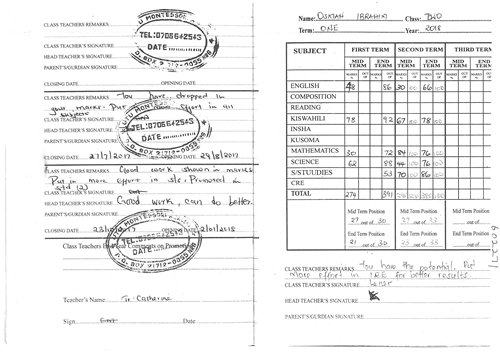 CLASS TEACHERS REMARKS
CLASS TEACHER'S SIGNATURE
HEAD TEACHER'S SIGNATURE
PARENT'S/GURDIAN SIGNATURE
CLOSING DATE OPENING DATE
MONTESSORI
TEL:0706642543
DATE
CLASS TEACHERS REMARKS You have dropped in
your marks. Put effort in all
subjects
CLASS TEACHER'S SIGNATURE
HEAD TEACHER'S SIGNATURE
PARENT'S/GURDIAN SIGNATURE
MONTESSORI
TEL:0706642543
DATE
P.O. BOX 21712-00505
CLOSING DATE 27/7/2017 OPENING DATE 29/8/2017
CLASS TEACHERS REMARKS Good work shown in marks
Put in more effort in Promoted in
std (2)
CLASS TEACHER'S SIGNATURE
HEAD TEACHER'S SIGNATURE Good work, can do better.
PARENT'S/GURDIAN SIGNATURE
CLOSING DATE OPENING DATE 2/01/2018
Class Teachers General Comments on Promotion
TEL:0706642543
DATE
P.O. BOX 21712-00505
Teacher's Name Tr. Catherine
Sign Date
Name: IBRAHIM Class: TWO
Term: ONE Year: 2018
SUBJECT FIRST TERM SECOND TERM THIRD TERM
MID TERM END TERM MID TERM END TERM MID TERM END TERM
MARKS OUT OF MARKS OUT OF MARKS OUT OF MARKS OUT OF MARKS OUT OF
ENGLISH 48 86 30 100 66 100
COMPOSITION
READING
KISWAHILI 78 92 67 100 78 100
INSHA
KUSOMA
MATHEMATICS 30 72 84 100 76 100
SCIENCE 62 98 44 100 76 100
S/STUUDIES 53 70 100 86 100
CRE
TOTAL 274 391
Mid Term Position Mid Term Position Mid Term Position
27 out of 30 27 out of 33 out of
End Term Position End Term Position End Term Position
21 out of 30 23 out of 33 out of
CLASS TEACHERS REMARKS You have the potential. Put
more effort in CRE for better results.
CLASS TEACHER'S SIGNATURE
HEAD TEACHER'S SIGNATURE
PARENT'S/GURDIAN SIGNATURE